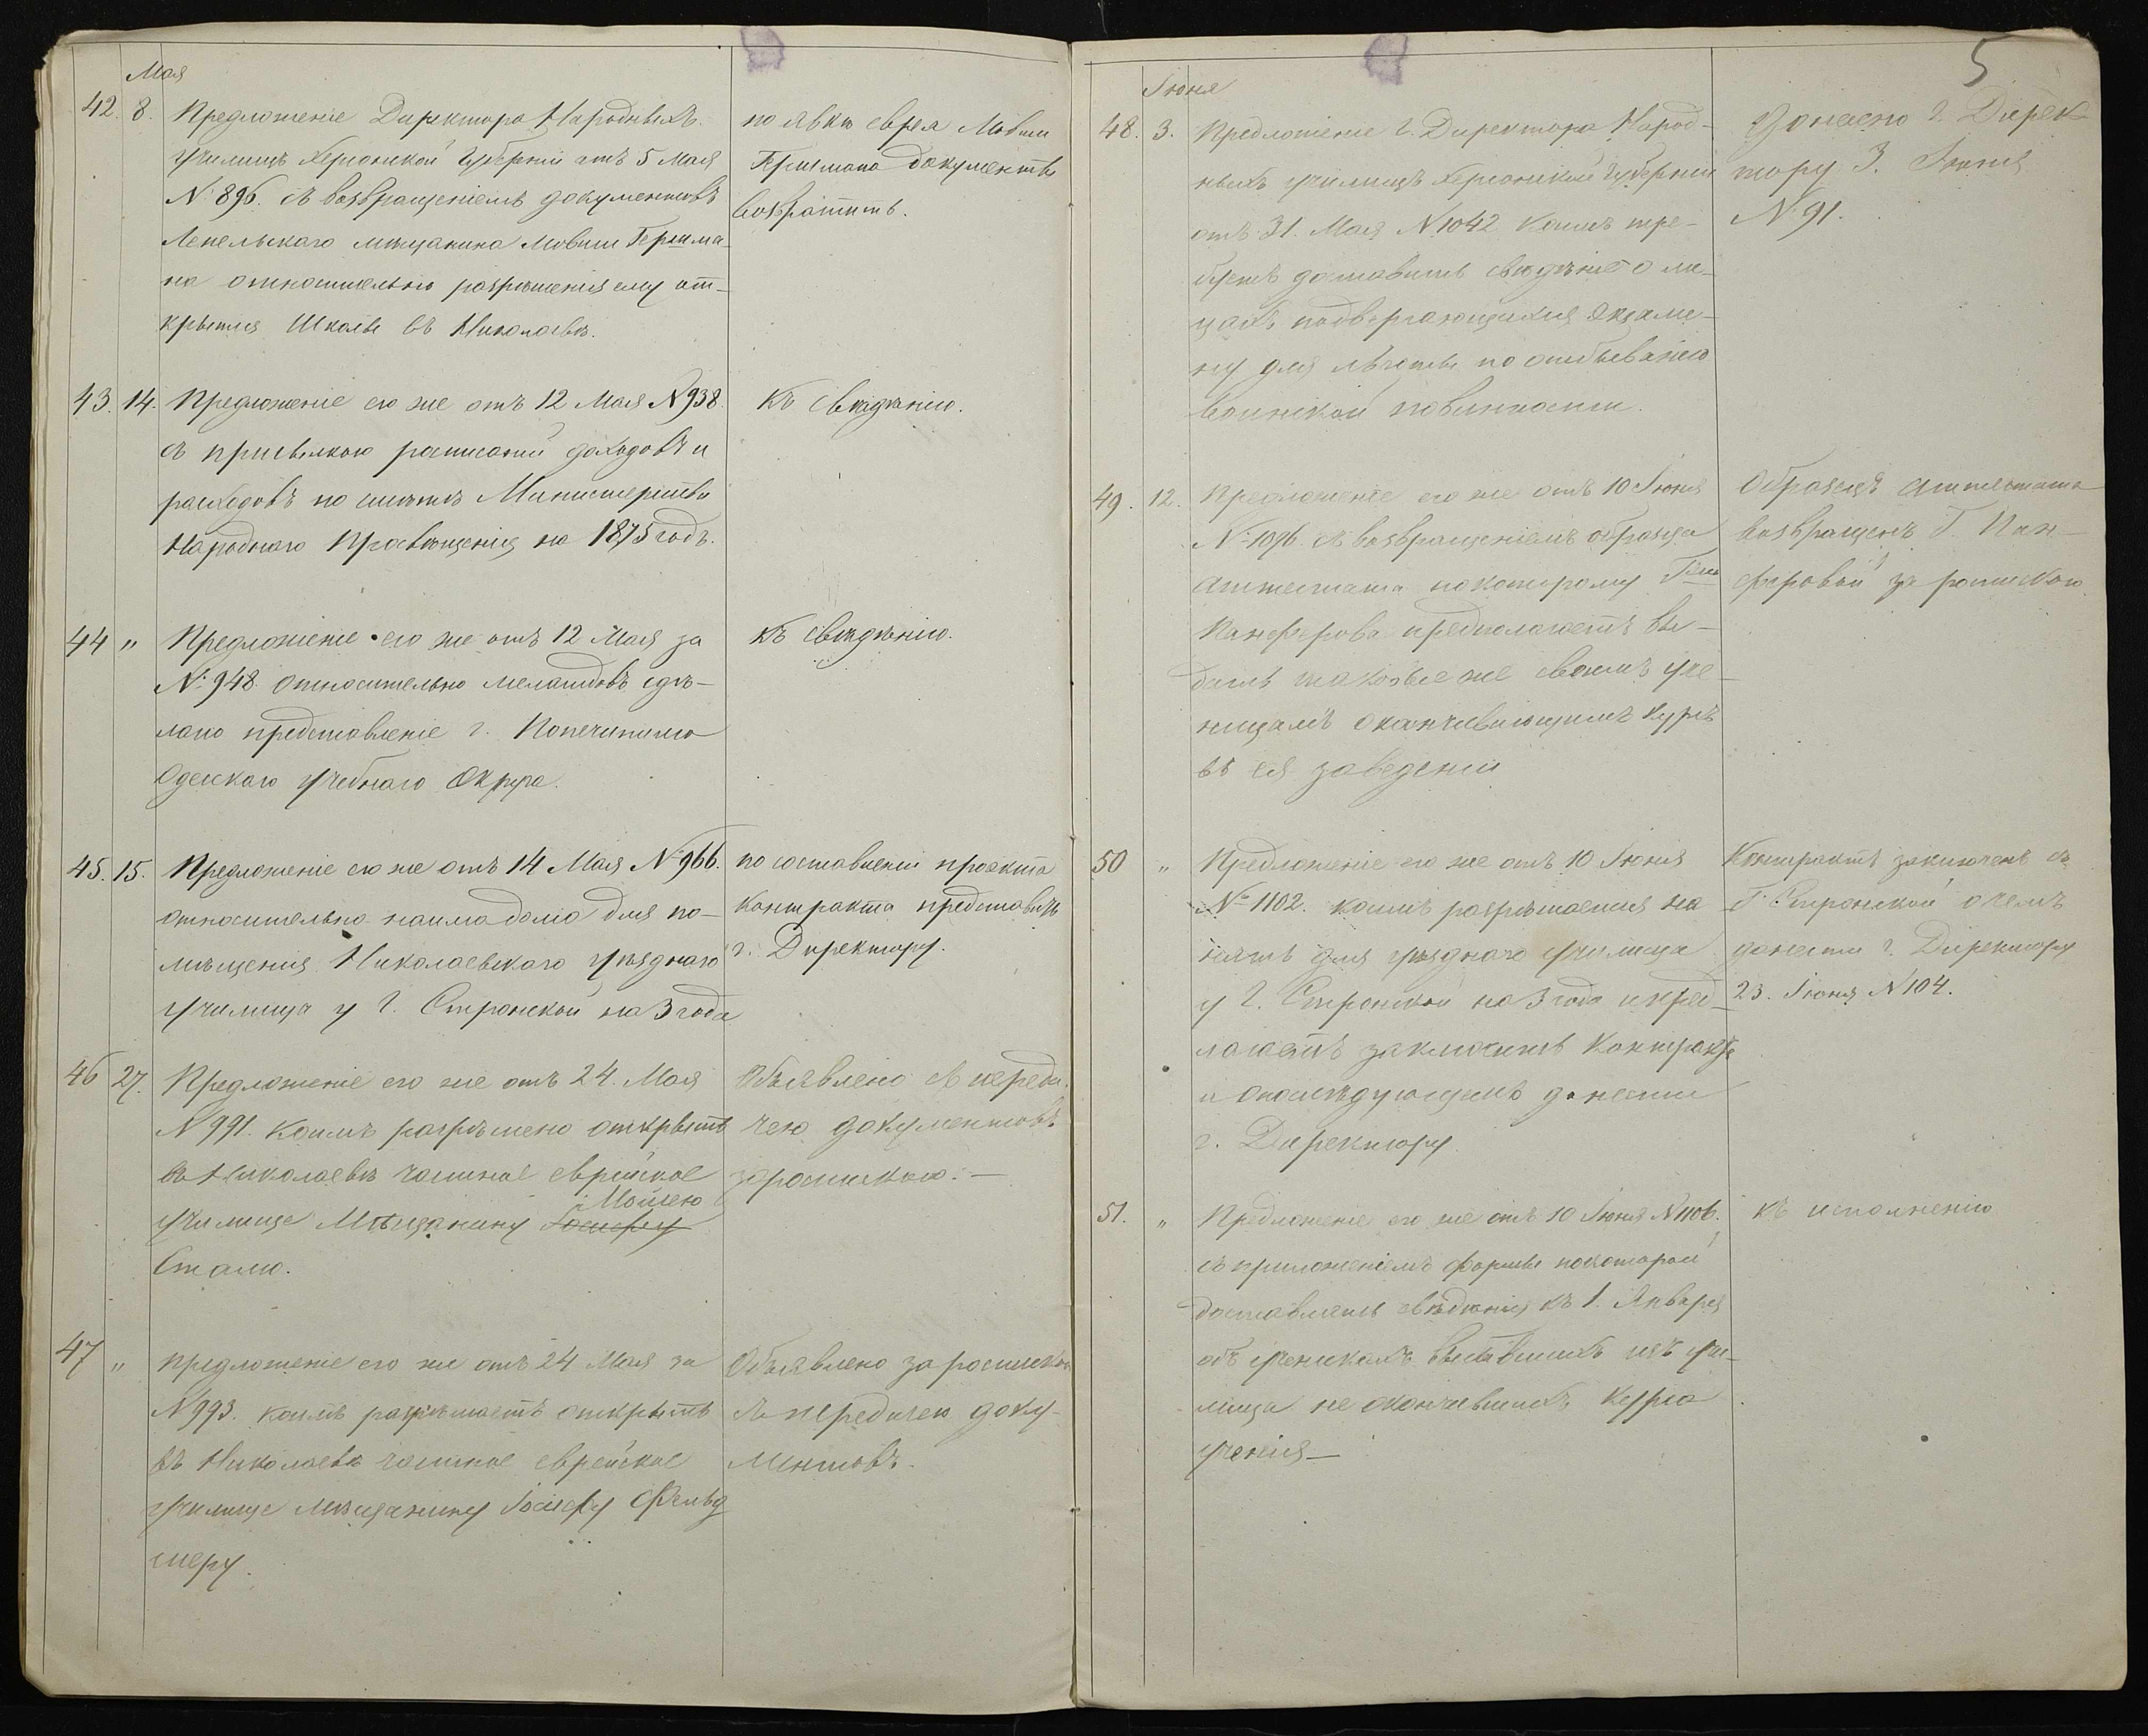 Мая
42. 8. Предложеніе Директора Народныхъ
училищъ Херсонской Губерніи отъ 5 Мая
№ 896. съ возвращеніемъ документовъ
Лепельскаго мѣщанина Мовши Гершма-
на относительно разрѣшенія ему от-
крытія Школы въ Николаевѣ.
по явкѣ еврея Мовши
Гершмана документы
возвратить.
43. 14. Предложеніе его же отъ 12 Мая № 938
съ присылкою росписаній доходовъ и
расходовъ по смѣтѣ Министерства
Народнаго Просвѣщенія на 1875 годъ.
Къ свѣдѣнію.
44 " Предложеніе его же отъ 12 Мая за
№ 948. относительно сдѣ-
лано представленіе г. Попечителю
Одесскаго учебнаго Округа.
Къ свѣдѣнію.
45. 15. Предложеніе его же отъ 14 Мая № 966.
относительно найма дома для по-
мѣщенія Николаевскаго уѣзднаго
училища у Г. Стронской на 3 года
по составленіи проэкта
контракта представить
г. Директору.
46 27. Предложеніе его же отъ 24. Мая
№ 991. коимъ разрѣшено открыть
въ Николаевѣ частное еврейское
Мойсею
училище Мѣщанину Іосифу
Сталю.
Объявлено съ переда-
чею документовъ
за роспискою. —
47 " предложеніе его же отъ 24 Мая за
№ 993. коимъ разрѣшаетъ открыть
въ Николаевѣ частное еврейское
училище мѣщанину Іосифу Фельд
шеру.
Объявлено за роспискою
съ передачею доку-
ментовъ.
5
Іюня
48. 3. Предложеніе Г. Директора Народ-
ныхъ училищъ Херсонской Губерніи
отъ 31. Мая № 1042 коимъ тре-
буетъ доставить свѣдѣніе о ли-
цахъ подвергающихся экзаме-
ну для льготы по отбыванію
воинской повинности.
Донесено г. Дирек-
тору 3. Іюня
№ 91.
49. 12. Предложеніе его же отъ 10 Іюня
№ 1096. съ возвращеніемъ образца
аттестата по которому Г-жа
Панферова предполагаетъ вы-
дать таковые же своимъ уче-
ницамъ оканчивающимъ курсъ
въ ея заведеніи
Образецъ аттестата
возвращенъ Г. Пан-
феровой за роспискою.
50 " Предложеніе его же отъ 10 Іюня
№ 1102. коимъ разрѣшается на
нять для уѣзднаго училища
у Г. Стронской на 3 года и пред-
лагаетъ заключить контрактъ
и о послѣдующемъ донести
г. Директору
Контрактъ заключенъ съ
Г. Стронской о чемъ
донести г. Директору
23. Іюня № 104.
51. " Предложеніе его же отъ 10 Іюня № 1106.
съ приложеніемъ формы по которой
доставлять свѣдѣнія къ 1. Января
объ ученикахъ выбывшихъ изъ учи-
лища не окончившихъ курса
ученія —
къ исполненію